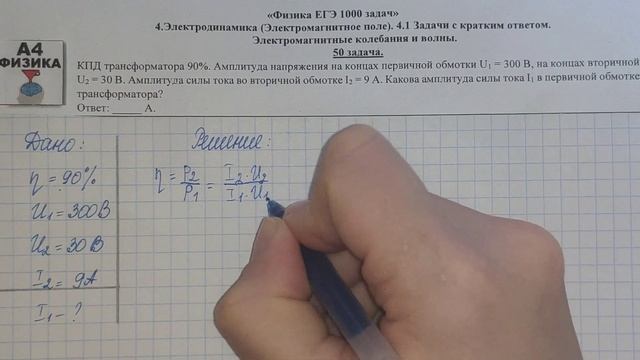 «Физика ЕГЭ 1000 задач»
4.Электродинамика (Электромагнитное поле). 4.1 Задачи с кратким ответом.
Электромагнитные колебания и волны.
50 задача.
А4
ФИЗИКА
КПД трансформатора 90%. Амплитуда напряжения на концах первичной обмотки U₁ = 300 В, на концах вторичной
U₂ = 30 В. Амплитуда силы тока во вторичной обмотке I₂ = 9 А. Какова амплитуда силы тока I₁ в первичной обмотке
трансформатора?
Ответ: _____ А.
Дано:
η = 90%
U₁ = 300В
U₂ = 30В
I₂ = 9А
I₁ - ?
Решение:
η = P₂/P₁ = I₂·U₂/I₁·U₁